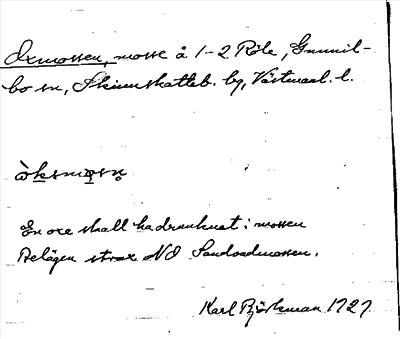 Oxmossen, mosse å 1-2 Röle, Gunnil-
bo sn, Skinnskatteb. bg, Västmanl. l.
òksmosn
En oxe skall ha drunknat i mossen
Belägen strax NO Sandvadmossen.
Karl Björkman 1727